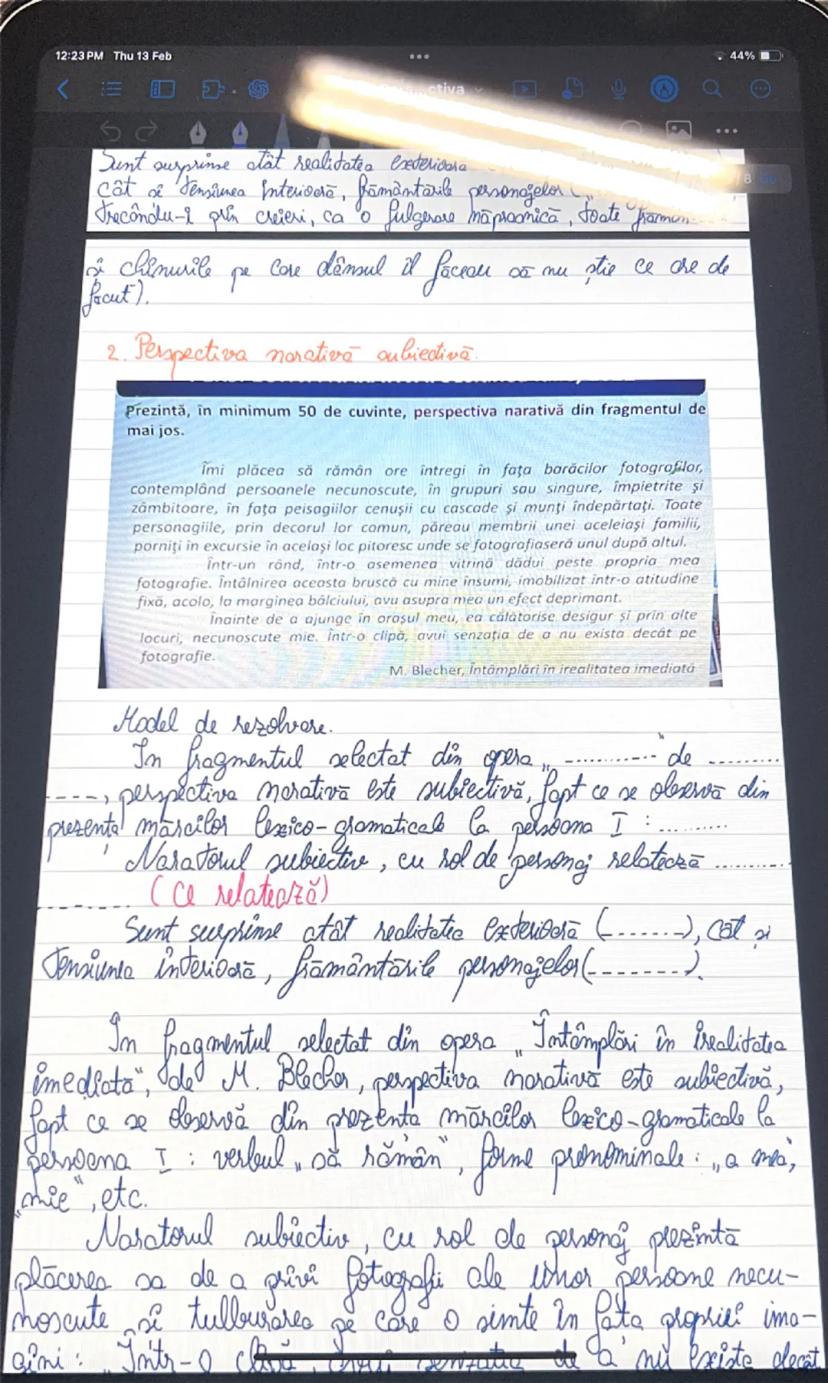 12:23 PM Thu 13 Feb
44%
ctiva
8
Sunt surprinse atât realitatea exterioară
cât și tensiunea interioară, frământările personajelor (
trecându-i prin creieri, ca o fulgerare năprasnică, toate
și chinurile pe care dânsul îl făceau să nu știe ce are de
făcut).
2. Perspectiva narativă subiectivă.
Prezintă, în minimum 50 de cuvinte, perspectiva narativă din fragmentul de
mai jos.
Îmi plăcea să rămân ore întregi în fața barăcilor fotografilor,
contemplând persoanele necunoscute, în grupuri sau singure, împietrite și
zâmbitoare, în fața peisagiilor cenușii cu cascade și munți îndepărtați. Toate
personagiile, prin decorul lor comun, păreau membrii unei aceleiași familii,
porniți în excursie în același loc pitoresc unde se fotografiaseră unul după altul.
Într-un rând, într-o asemenea vitrină dădui peste propria mea
fotografie. Întâlnirea aceasta bruscă cu mine însumi, imobilizat într-o atitudine
fixă, acolo, la marginea bâlciului, avu asupra mea un efect deprimant.
Înainte de a ajunge în orașul meu, ea călătorise desigur și prin alte
locuri, necunoscute mie. Într-o clipă, avui senzația de a nu exista decât pe
fotografie.
M. Blecher, Întâmplări în irealitatea imediată
Model de rezolvare.
În fragmentul selectat din opera „............" de ........
----, perspectiva narativă este subiectivă, fapt ce se observă din
prezența mărcilor lexico-gramaticale la persoana I : ........
Naratorul subiectiv, cu rol de personaj relatează .........
......... (Ce relatează)
Sunt surprinse atât realitatea exterioară (------), cât și
tensiunea interioară, frământările personajelor (-------).
În fragmentul selectat din opera „Întâmplări în irealitatea
imediată", de M. Blecher, perspectiva narativă este subiectivă,
fapt ce se observă din prezența mărcilor lexico-gramaticale la
persoana I : verbul „să rămân", forme pronominale : „a mea,
„mie", etc.
Naratorul subiectiv, cu rol de personaj prezintă
plăcerea sa de a privi fotografii ale unor persoane necu-
noscute și tulburarea pe care o simte în fața propriei ima-
gini : „Într-o clipă, avui senzația de a nu exista decât